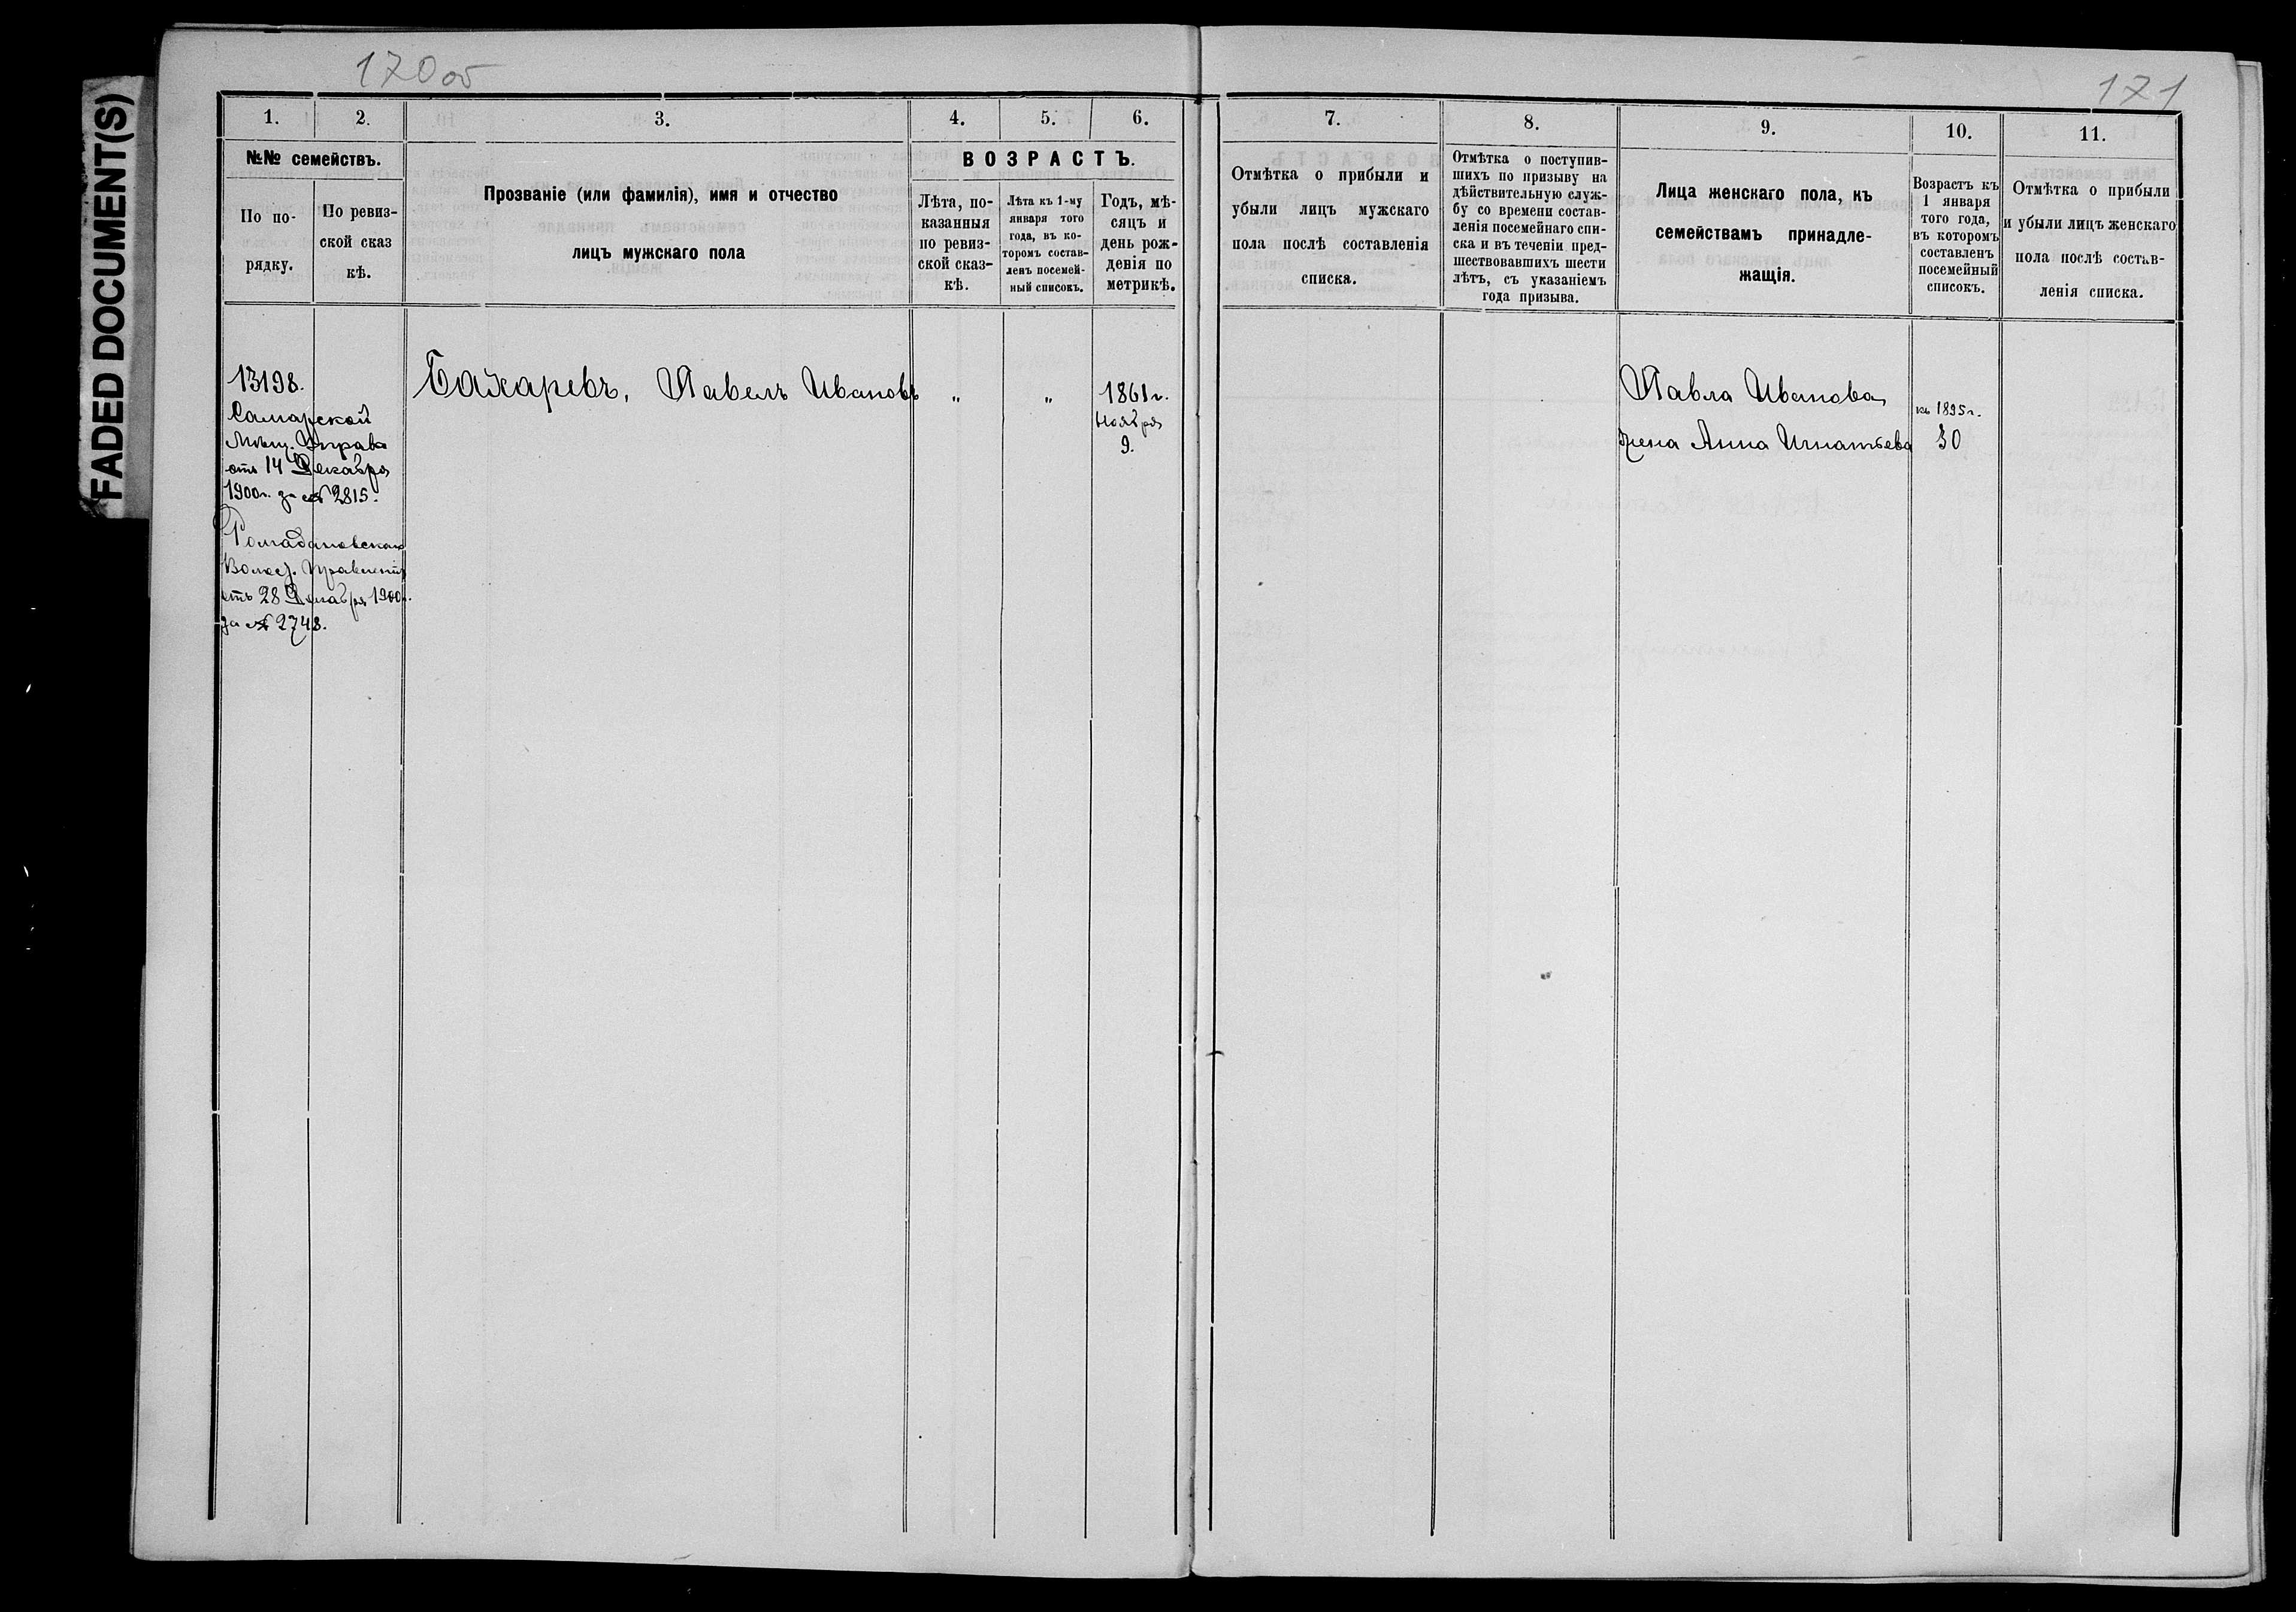 FADED DOCUMENT(S)
170 об
171
1. 2. 3. 4. 5. 6.
№№ семействъ.
По по-
рядку.
По ревиз-
ской сказ
кѣ.
Прозваніе (или фамилія), имя и отчество
лицъ мужскаго пола
ВОЗРАСТЪ.
Лѣта, по-
казанныя
по ревиз-
ской сказ-
кѣ.
Лѣта къ 1-му
января того
года, въ ко-
торомъ состав-
ленъ посемей-
ный списокъ.
Годъ, мѣ-
сяцъ и
день рож-
денія по
метрикѣ.
13198.
Самарской
Мѣщ. Управы
отъ 14 Декабря
1900г. за № 2815.
Ромадановскаго
Волост.
отъ 28 Декабря 1900г.
за № 2748.
Павелъ Ивановъ
„
„
1861г.
Ноября
9.
7. 8. 9. 10. 11.
Отмѣтка о прибыли и
убыли лицъ мужскаго
пола послѣ составленія
списка.
Отмѣтка о поступив-
шихъ по призыву на
дѣйствительную служ-
бу со времени состав-
ленія посемейнаго спи-
ска и въ теченіи пред-
шествовавшихъ шести
лѣтъ, съ указаніемъ
года призыва.
Лица женскаго пола, къ
семействамъ принадле-
жащія.
Возрастъ къ
1 января
того года,
въ которомъ
составленъ
посемейный
списокъ.
Отмѣтка о прибыли
и убыли лицъ женскаго
пола послѣ состав-
ленія списка.
Павла Иванова
жена Анна Игнатьева
къ 1895г.
30